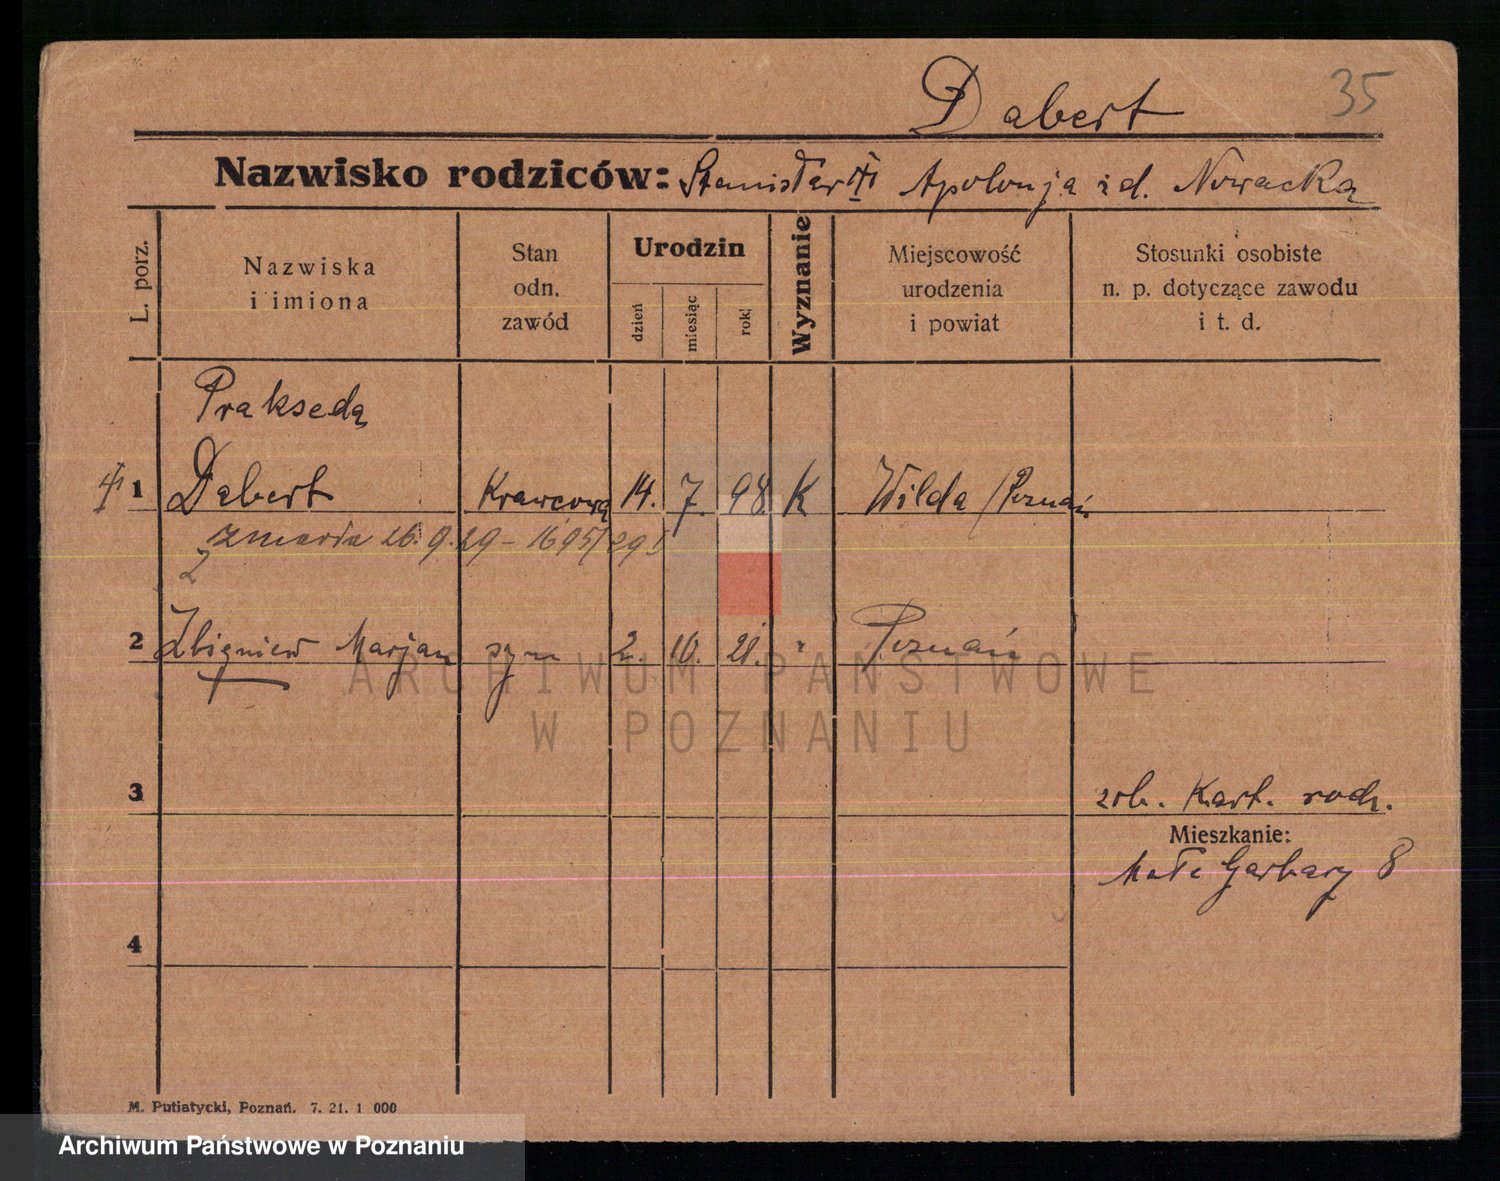 Dabert 35
Nazwisko rodziców: Stanisław Apolonja z d. Nowacka
L. porz.
Nazwiska
i imiona
Stan
odn.
zawód
Urodzin
dzień
miesiąc
rok
Wyznanie
Miejscowość
urodzenia
i powiat
Stosunki osobiste
n. p. dotyczące zawodu
i t. d.
Prakseda
1 Dabert Krawcowa 14. 7. 98. K Wilda / Poznań
zmarła 26. 9. 29 – 1695/29
2 Zbigniew Marjan syn 2. 10. 21. " Poznań
3
zob. Kart. rodz.
Mieszkanie:
Małe Garbary 8
4
M. Putiatycki, Poznań. 7. 21. 1 000
ARCHIWUM PAŃSTWOWE
W POZNANIU
Archiwum Państwowe w Poznaniu